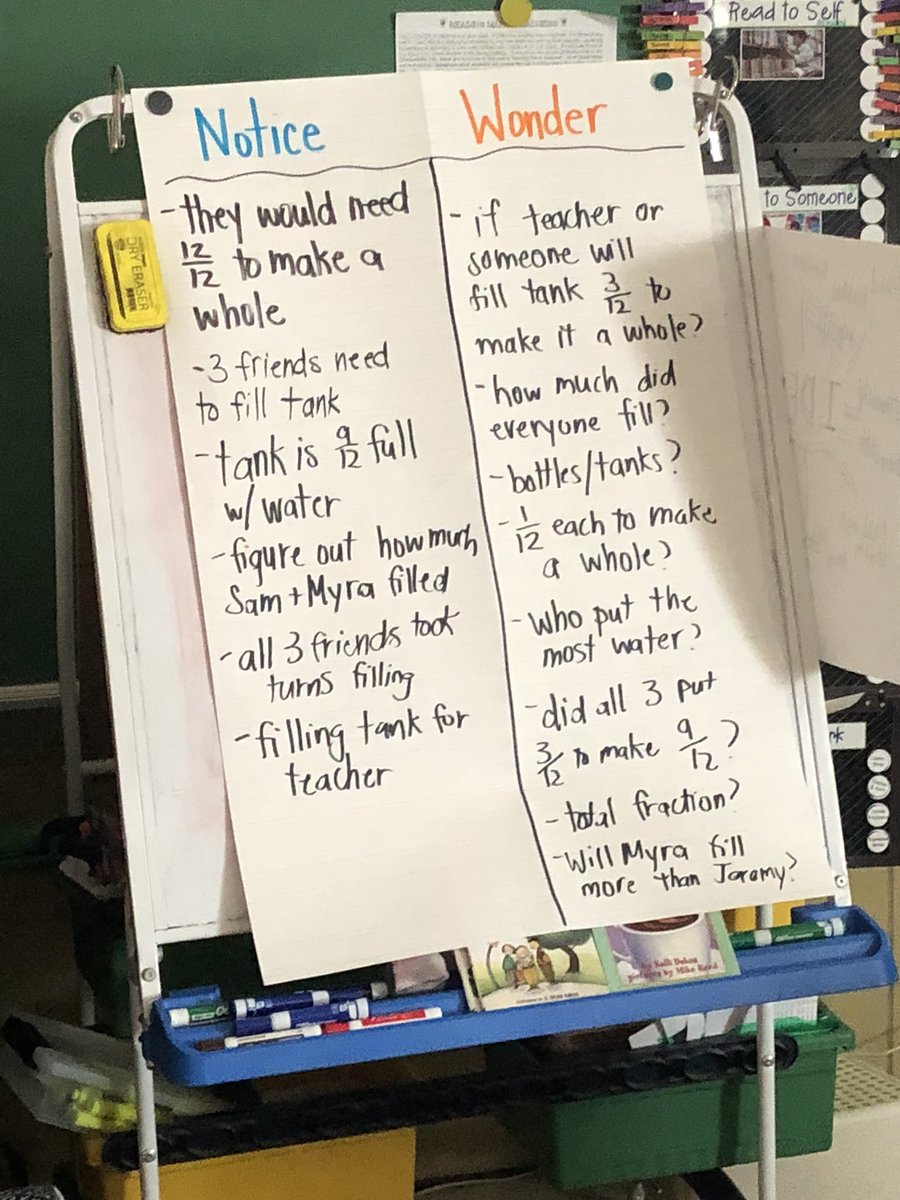 Read to Self
to Someone
DRY ERASER
Notice
- they would need
12/12 to make a
whole
- 3 friends need
to fill tank
- tank is 9/12 full
w/ water
- figure out how much
Sam + Myra filled
- all 3 friends took
turns filling
- filling tank for
teacher
Wonder
- if teacher or
someone will
fill tank 3/12 to
make it a whole?
- how much did
everyone fill?
- bottles/tanks?
- 1/12 each to make
a whole?
- who put the
most water?
- did all 3 put
3/12 to make 9/12?
- total fraction?
- Will Myra fill
more than Jeromy?